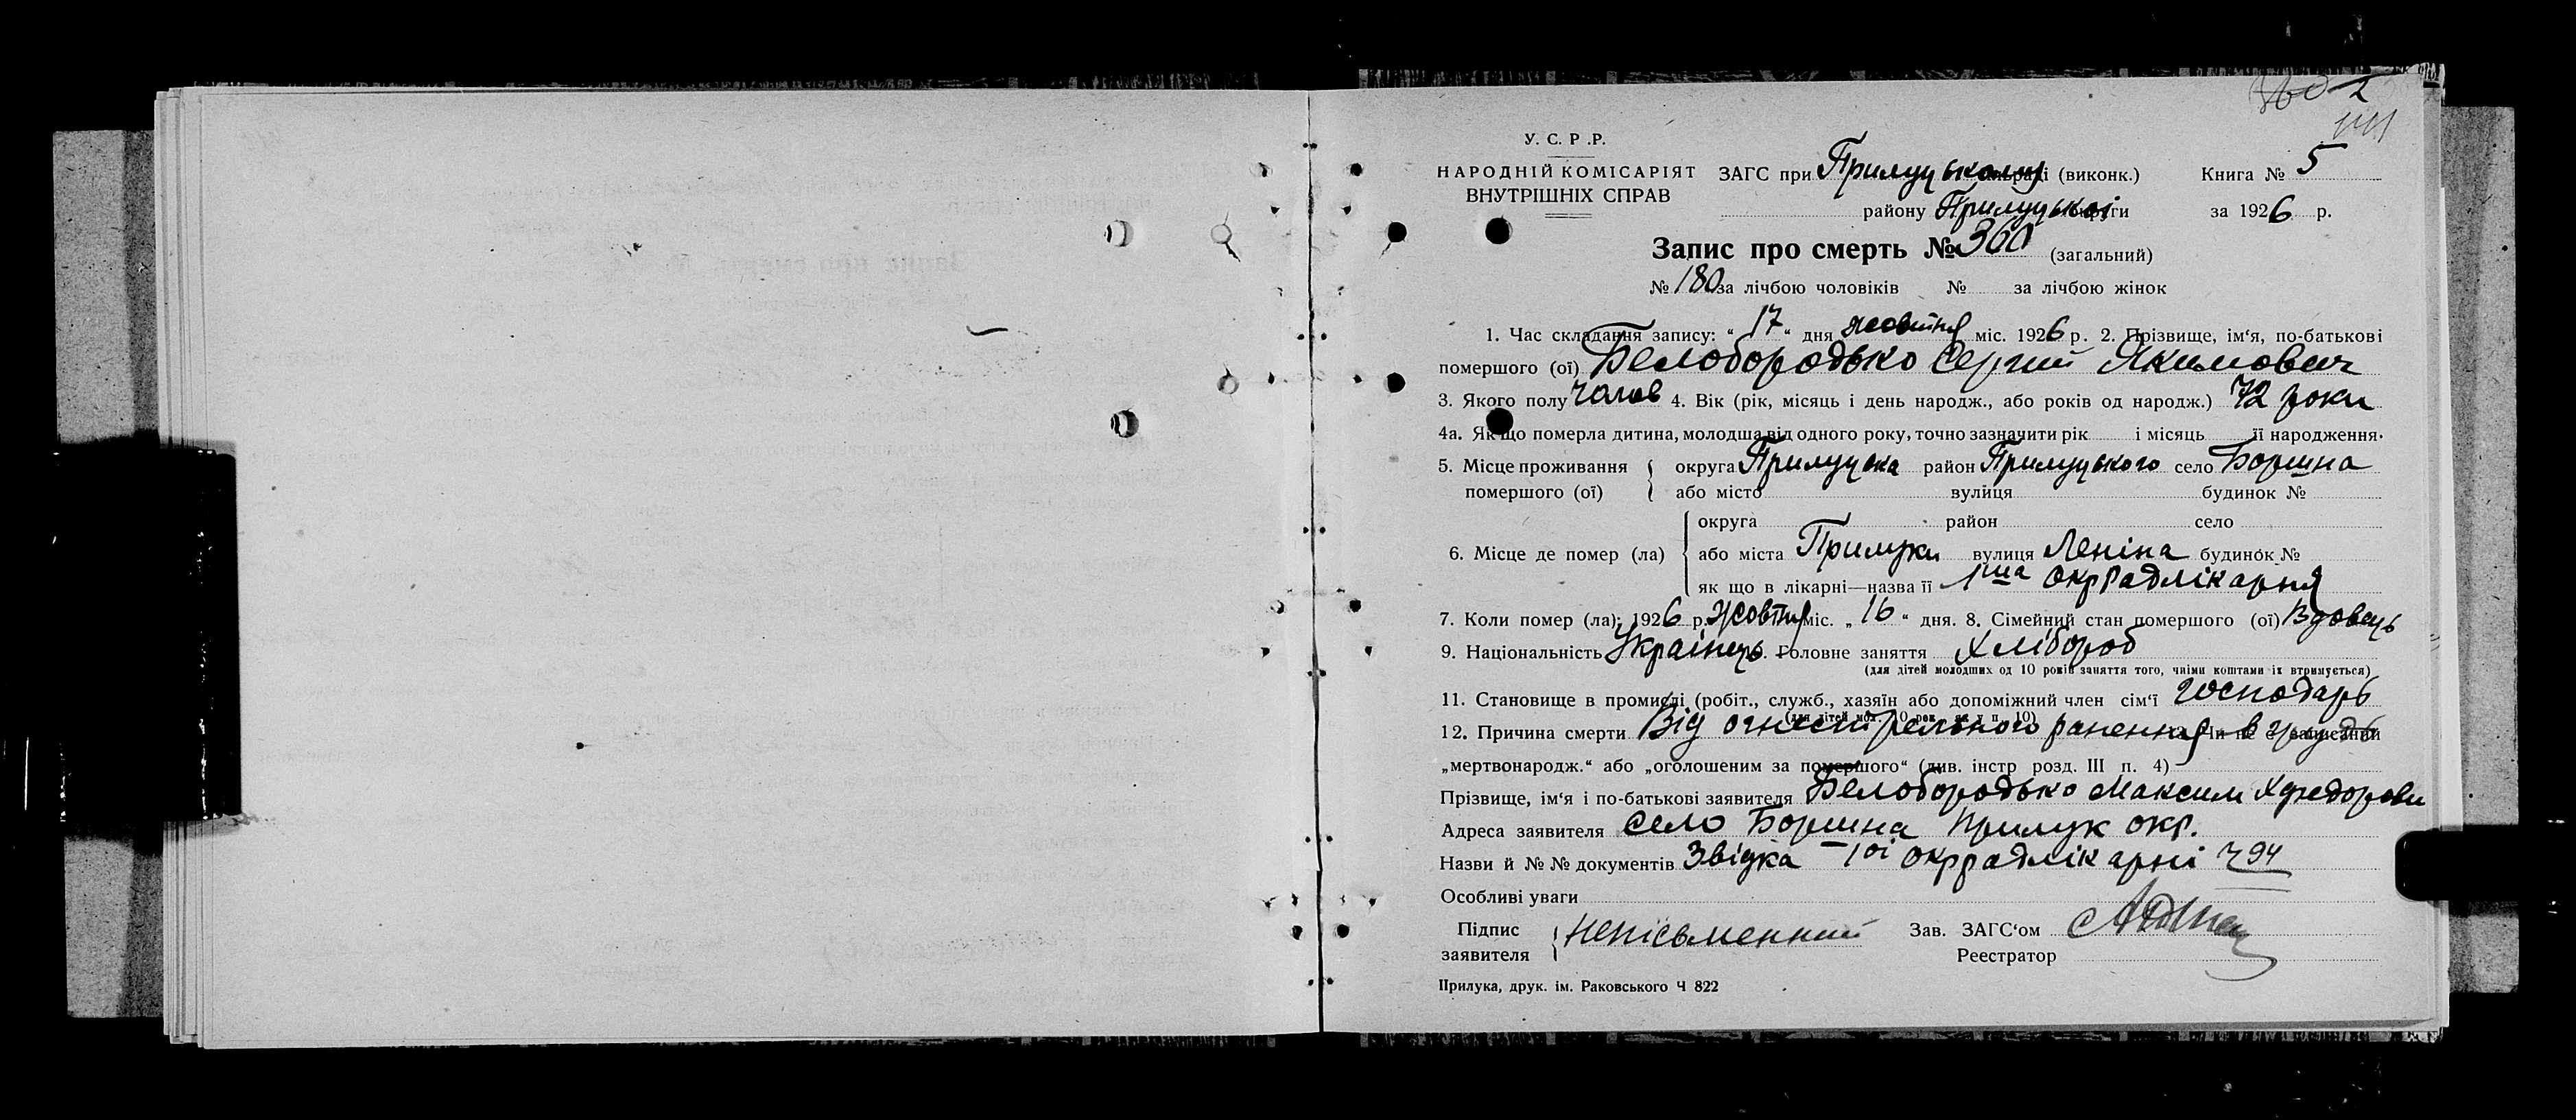 У. С. Р .Р.
НАРОДНІЙ КОМІСАРІЯТ
ВНУТРІШНІХ СПРАВ
ЗАГС при Прилуцькому (виконк.) Книга № 5
району Прилуцької округи за 1926 р.
Запис про смерть № 360 (загальний)
№ 180 за лічбою чоловіків № за лічбою жінок
1. Час складання запису: “ 17 “ дня жовтня міс. 1926 р. 2. Прізвище, ім‘я, по-батькові
помершого (ої) Белобородько Сергий Якимович
3. Якого полу чолов 4. Вік (рік, місяць і день народж., або років од народж.) 72 роки
4а. Як що померла дитина, молодша від одного року, точно зазначити рік і місяць її народження.
5. Місце проживання помершого (ої) { округа Прилуцька район Прилуцького село Боршна
або місто вулиця будинок №
6. Місце де помер (ла) { округа район село
або міста Прилуки вулиця Леніна будинок №
як що в лікарні—назва її 1ша окррадлікарня
7. Коли помер (ла): 1926 р. жовтня міс. „ 16 “ дня. 8. Сімейний стан помершого (ої) Вдовець
9. Національність Українець. Головне заняття Хлібороб
(для дітей молодших од 10 років заняття того, чиїми коштами їх втримується)
11. Становище в промислі (робіт., служб., хазяїн або допоміжний член сім‘ї господарь
(для дітей мол. 10 рок. як у п. 10)
12. Причина смерти Від огнестрельного ранення в грудь Чи не є записаний
„мертвонародж.“ або „оголошеним за помершого“ (див. інстр розд. III п. 4)
Прізвище, ім‘я і по-батькові заявителя Белобородько Максим Хфедорови
Адреса заявителя село Боршна Прилук окр.
Назви й № № документів Звідка 1ої окррадлікарні Ч 94
Особливі уваги
Підпис заявителя { Неписьменний Зав. ЗАГС‘ом
Реестратор
Прилука, друк. ім. Раковського Ч 822